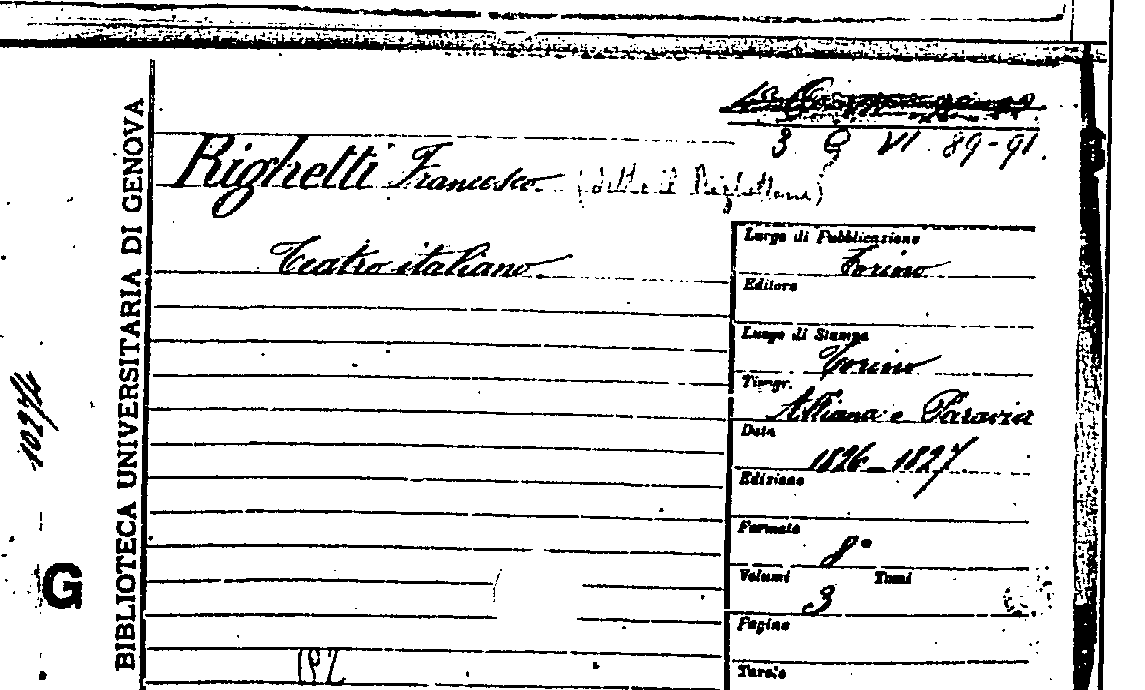 3 G VI 89-91.
Righetti Francesco (detto il Righettone)
Teatro italiano
Luogo di Pubblicazione
Torino
Editore
Luogo di Stampa
Torino
Tipogr.
Alliana e Paravia
Data
1826-1827
Edizione
Formato
8°
Volumi Tomi
3
Pagine
Tavole
192
BIBLIOTECA UNIVERSITARIA DI GENOVA
G